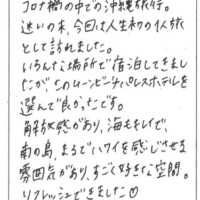 コロナ禍の中での沖縄旅行。
迷いの末、今回は人生初の1人旅
として訪れました。
いろんな場所で宿泊してきまし
たが、このムーンビーチパレスホテルを
選んで良かったです。
解放感があり、海もキレイで、
南の島、まるでハワイを感じさせる
雰囲気があり、すごく好きな空間。
リフレッシュできました♡